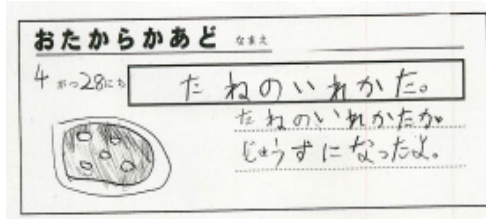 おたからかあど なまえ
4がつ28にち
たねのいれかた。
たねのいれかたが
じょうずになったよ。